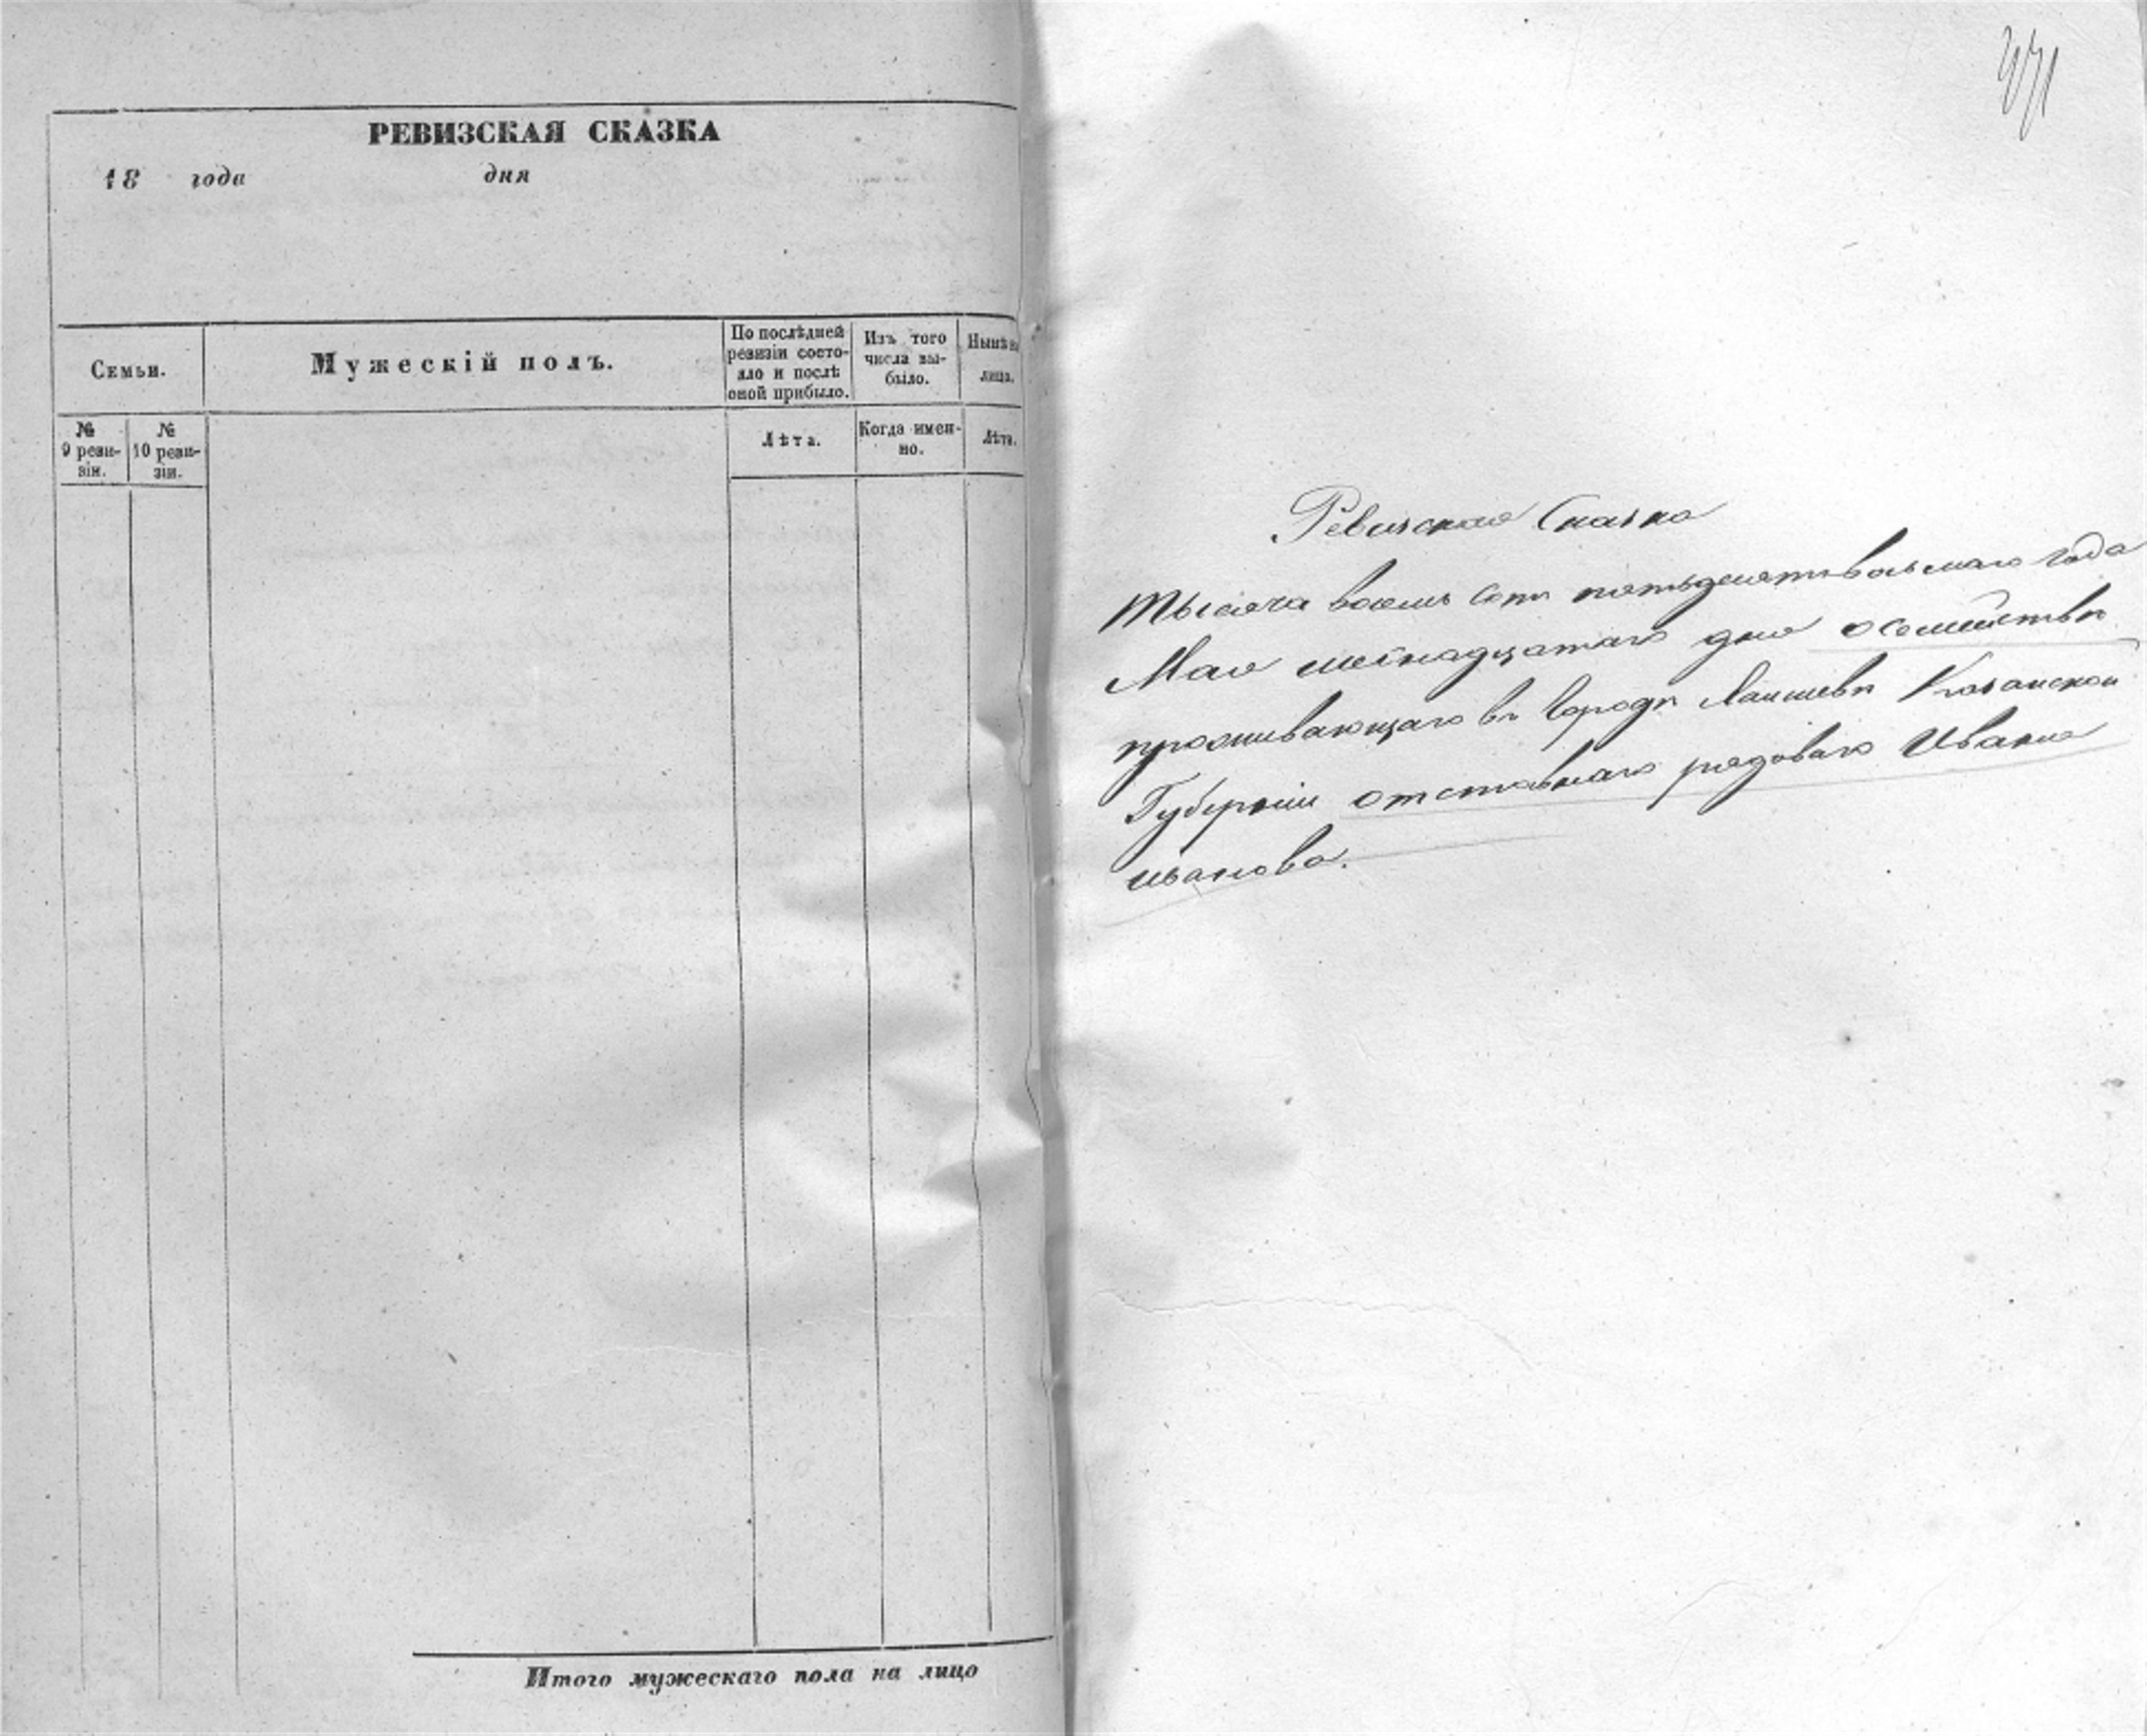 РЕВИЗСКАЯ СКАЗКА
18 года дня
Семьи.
Мужескій полъ.
По послѣдней
ревизіи состо-
яло и послѣ
оной прибыло.
Изъ того
числа вы-
было.
Нынѣ на
лицо.
№
9 реви-
зіи.
№
10 реви-
зіи.
Лѣта.
Когда имен-
но.
Лѣта.
Итого мужескаго пола на лицо
Ревизская Сказка
Тысяча восемь сотъ пятьдесятъ восьмаго года
Мая шестнадцатаго дня о семействѣ
проживающаго въ городѣ Лаишевѣ Казанской
Губерніи отставнаго рядоваго Ивана
Иванова.